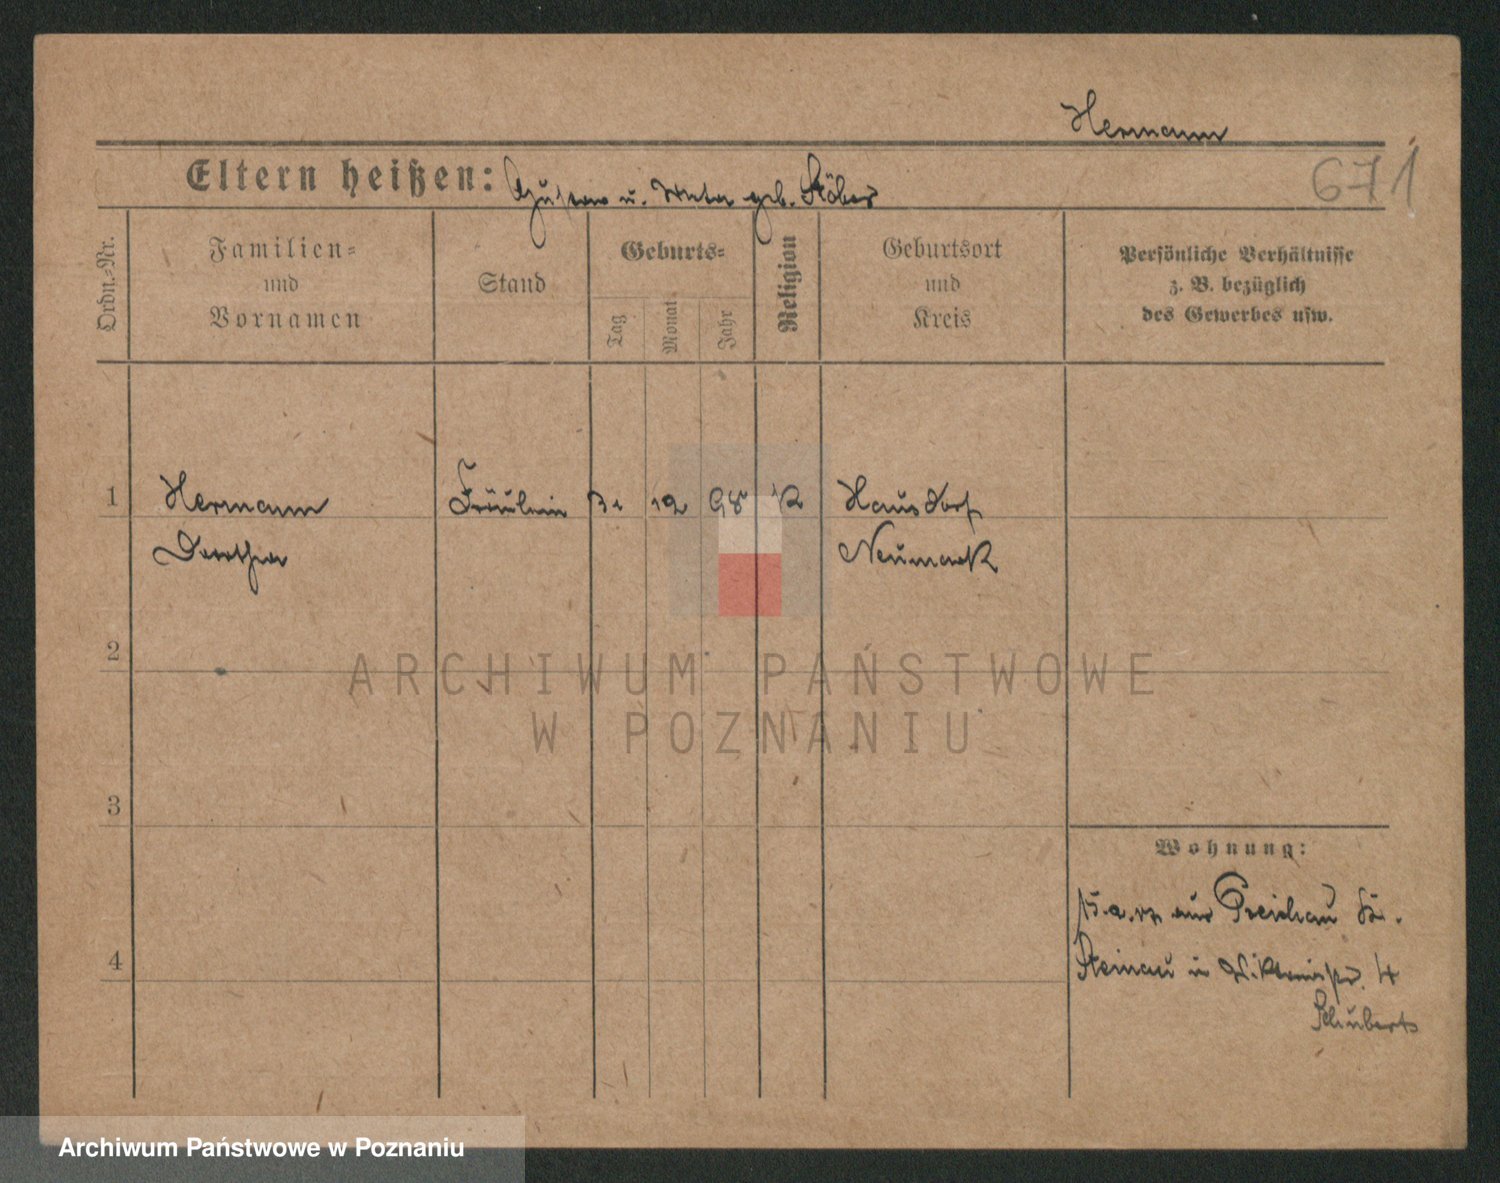 Hermann
671
Eltern heißen: Gustav u. geb. Stöber
Ordn.-Nr.
Familien=
und
Vornamen
Stand
Geburts=
Tag
Monat
Jahr
Religion
Geburtsort
und
Kreis
Persönliche Verhältnisse
z. B. bezüglich
des Gewerbes usw.
1 Hermann Fräulein 31 12 98 K Hausdorf
Dorothea Neumark
2
3
4
Wohnung:
aus Preichau Kr.
Steinau in 4
Schubert
ARCHIWUM PAŃSTWOWE
W POZNANIU
Archiwum Państwowe w Poznaniu